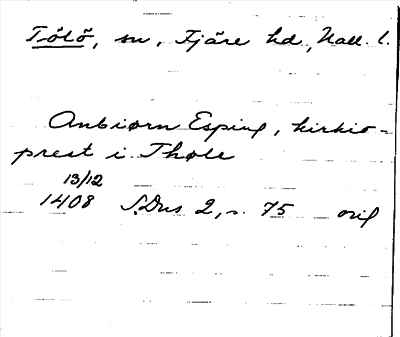 Tölö, sn, Fjäre hd, Hall. l.
Anbiørn Esping, kirkio-
prest i Thøle
13/12
1408 SDns 2, s. 75 orig